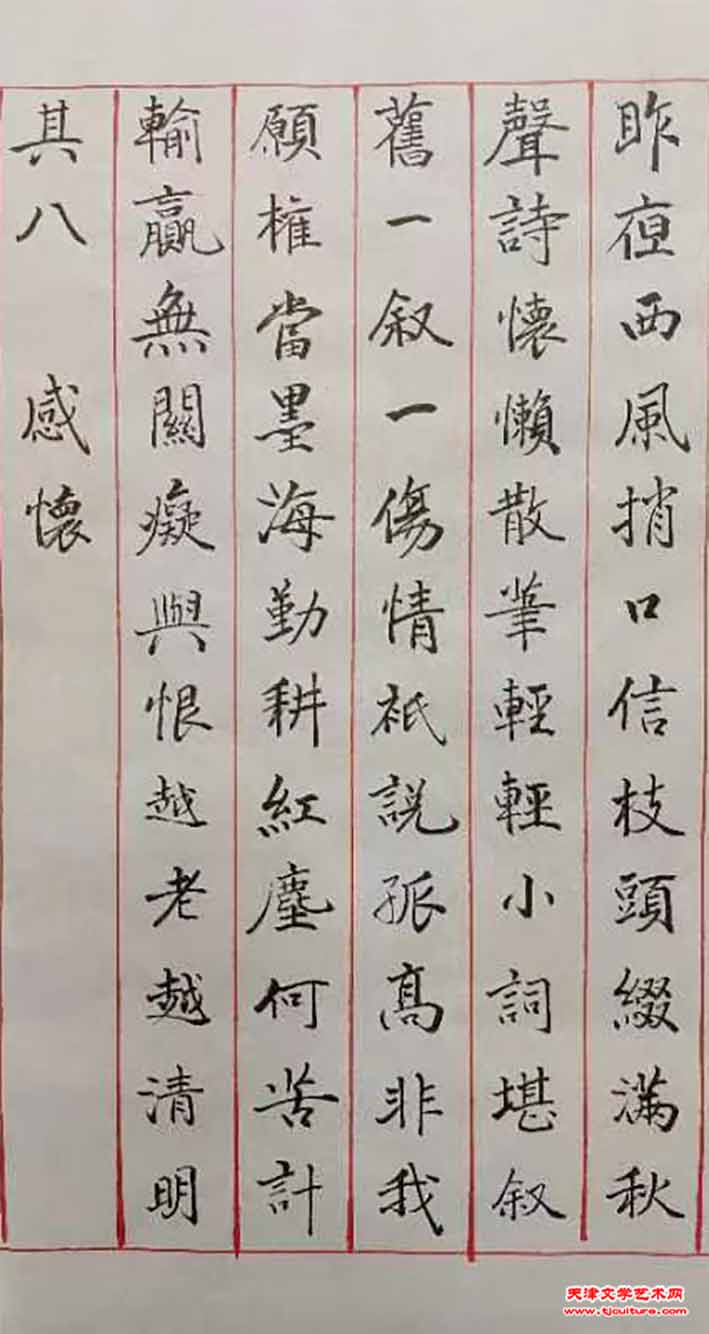 昨夜西風捎口信枝頭綴滿秋
聲詩懷懶散筆輕輕小詞堪叙
舊一叙一傷情祇説孤高非我
願權當墨海勤耕紅塵何苦計
輸贏無關癡與恨越老越清明
其八 感懷
天津文学艺术网
www.tjculture.com